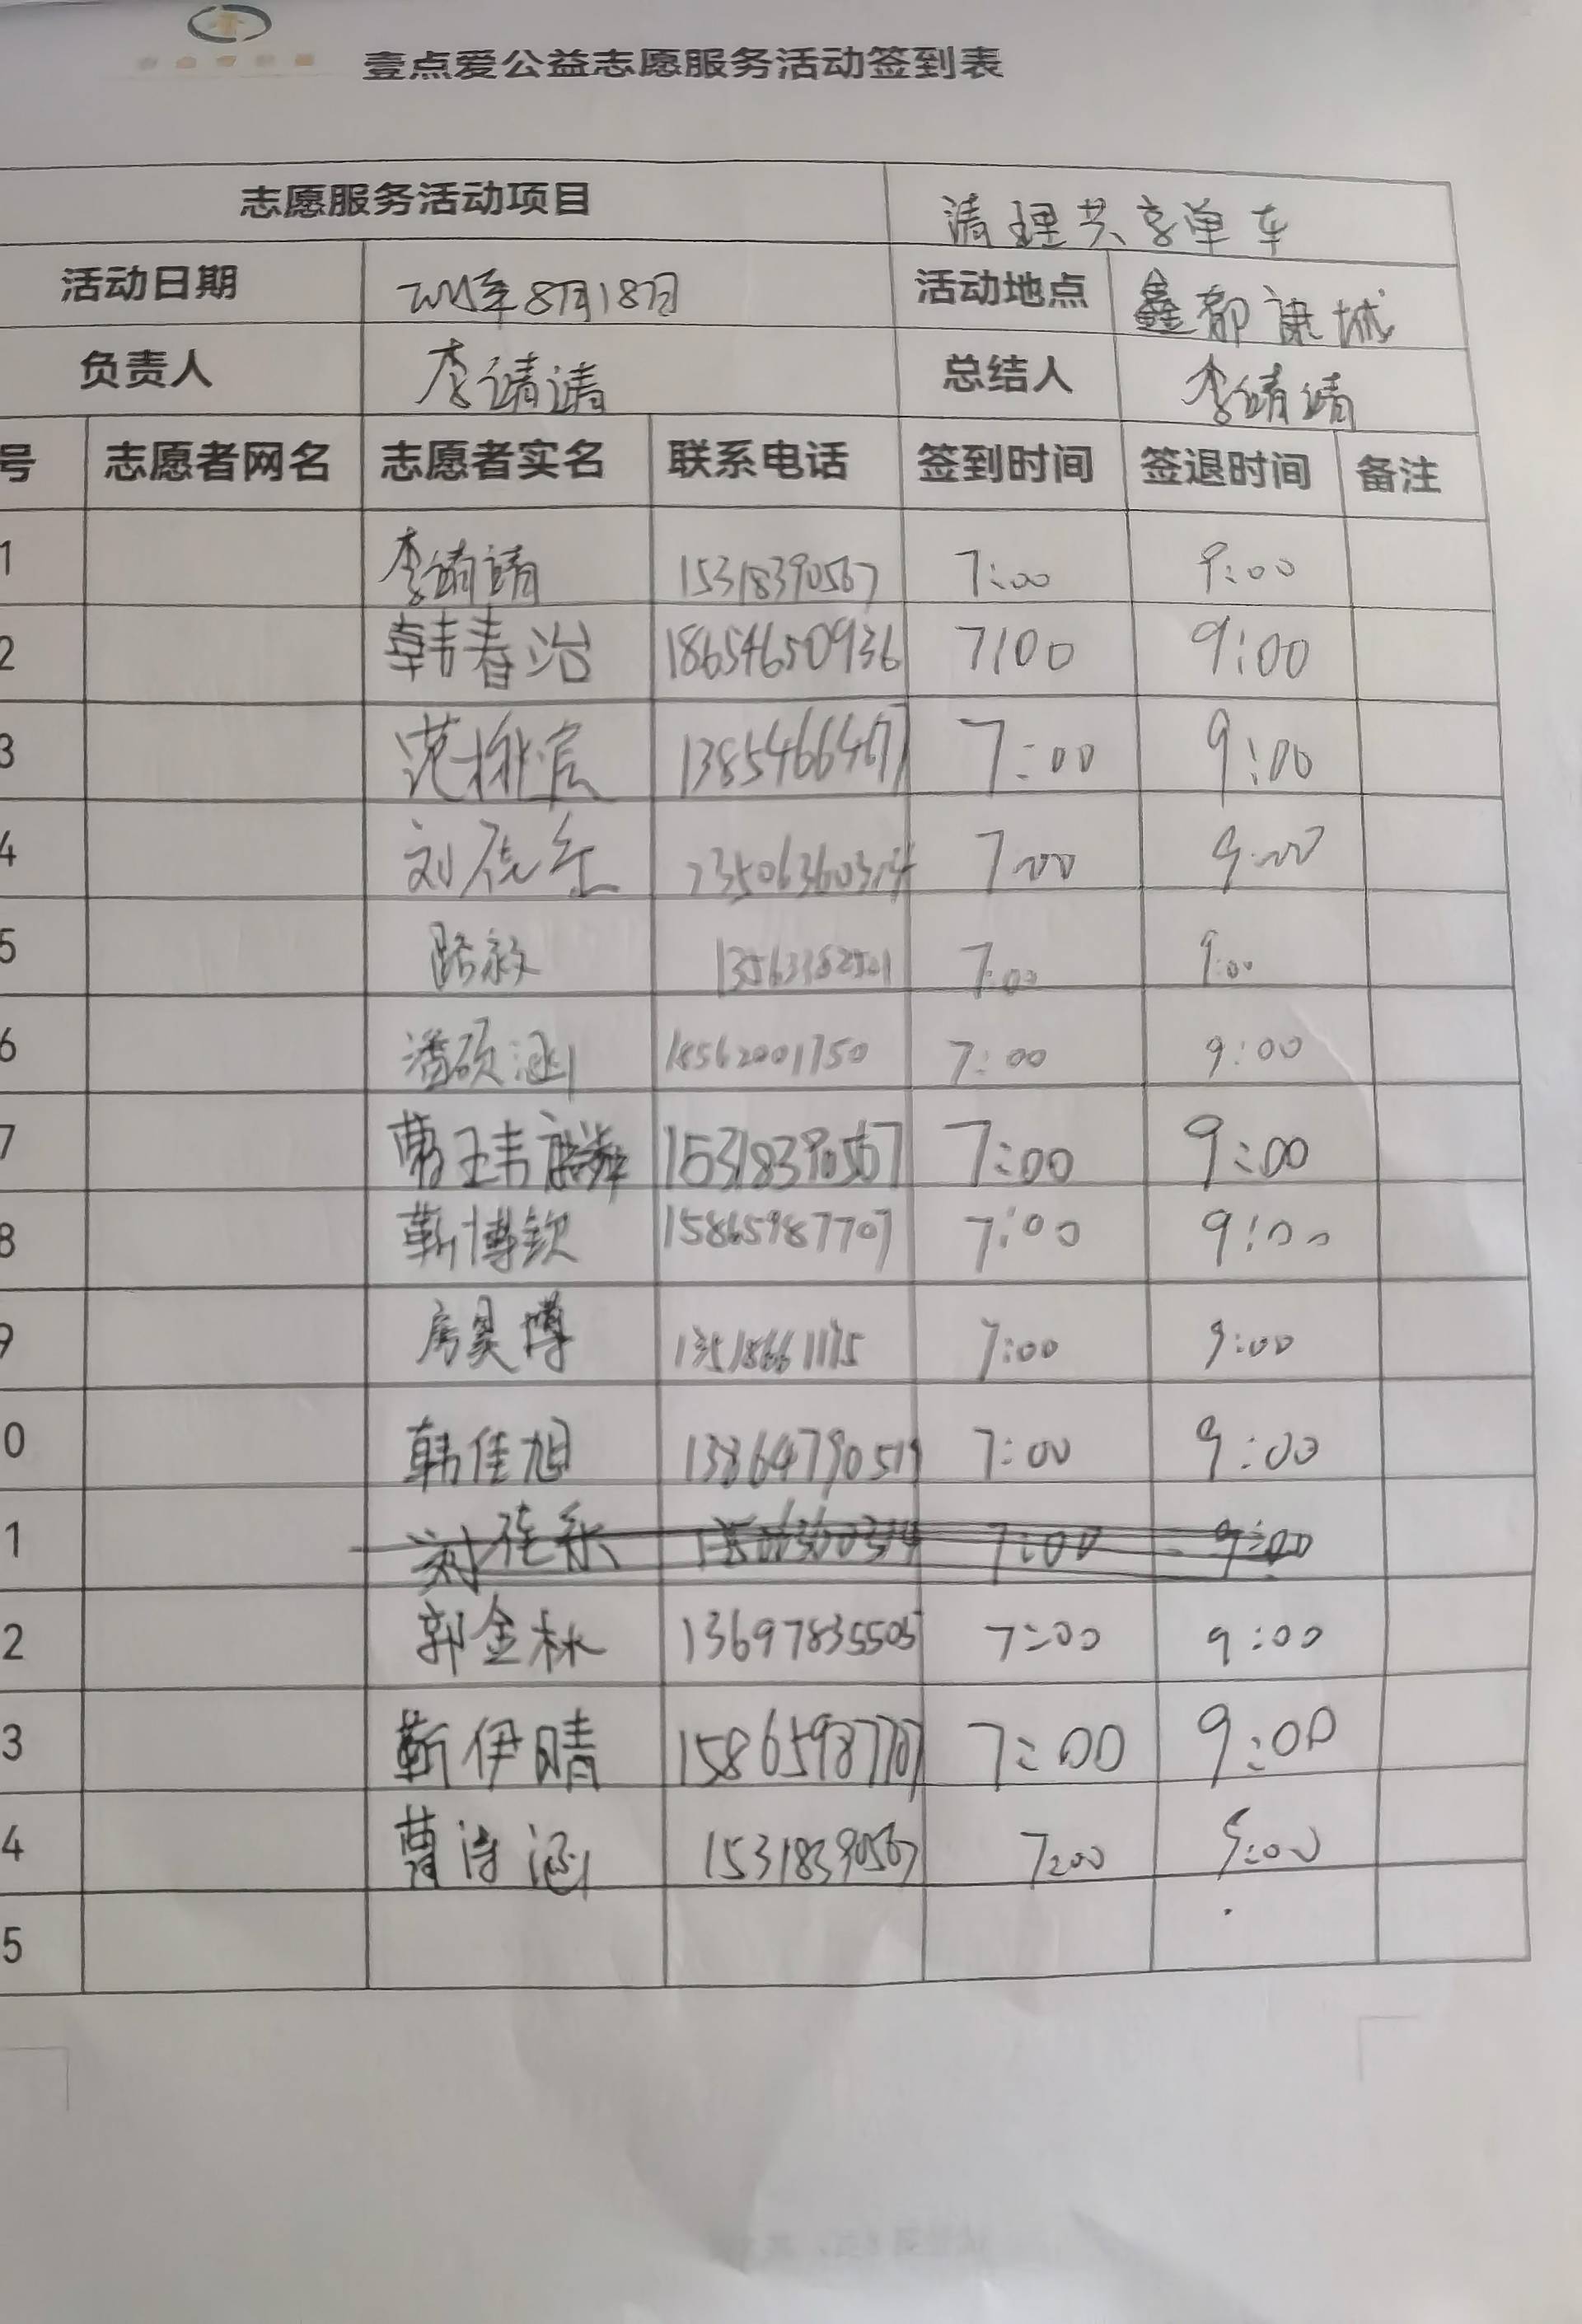 壹点爱公益志愿服务活动签到表
志愿服务活动项目 清理共享单车
活动日期 8月18日 活动地点 鑫都康城
负责人 李婧婧 总结人 李婧婧
号 志愿者网名 志愿者实名 联系电话 签到时间 签退时间 备注
1 李婧婧 15318390567 7:00 9:00
2 韩春冶 18654650936 7:00 9:00
3 7:00 9:00
4 刘 7:00 9:00
5 路毅 7:00 9:00
6 潘硕涵 18562001750 7:00 9:00
7 曹玮麟 15318390567 7:00 9:00
8 靳博钦 15865987707 7:00 9:00
9 房昊博 7:00 9:00
0 韩佳旭 13864790519 7:00 9:00
1 7:00 9:00
2 郭金林 13697835505 7:00 9:00
3 靳伊晴 15865987707 7:00 9:00
4 曹诗涵 15318390567 7:00 9:00
5